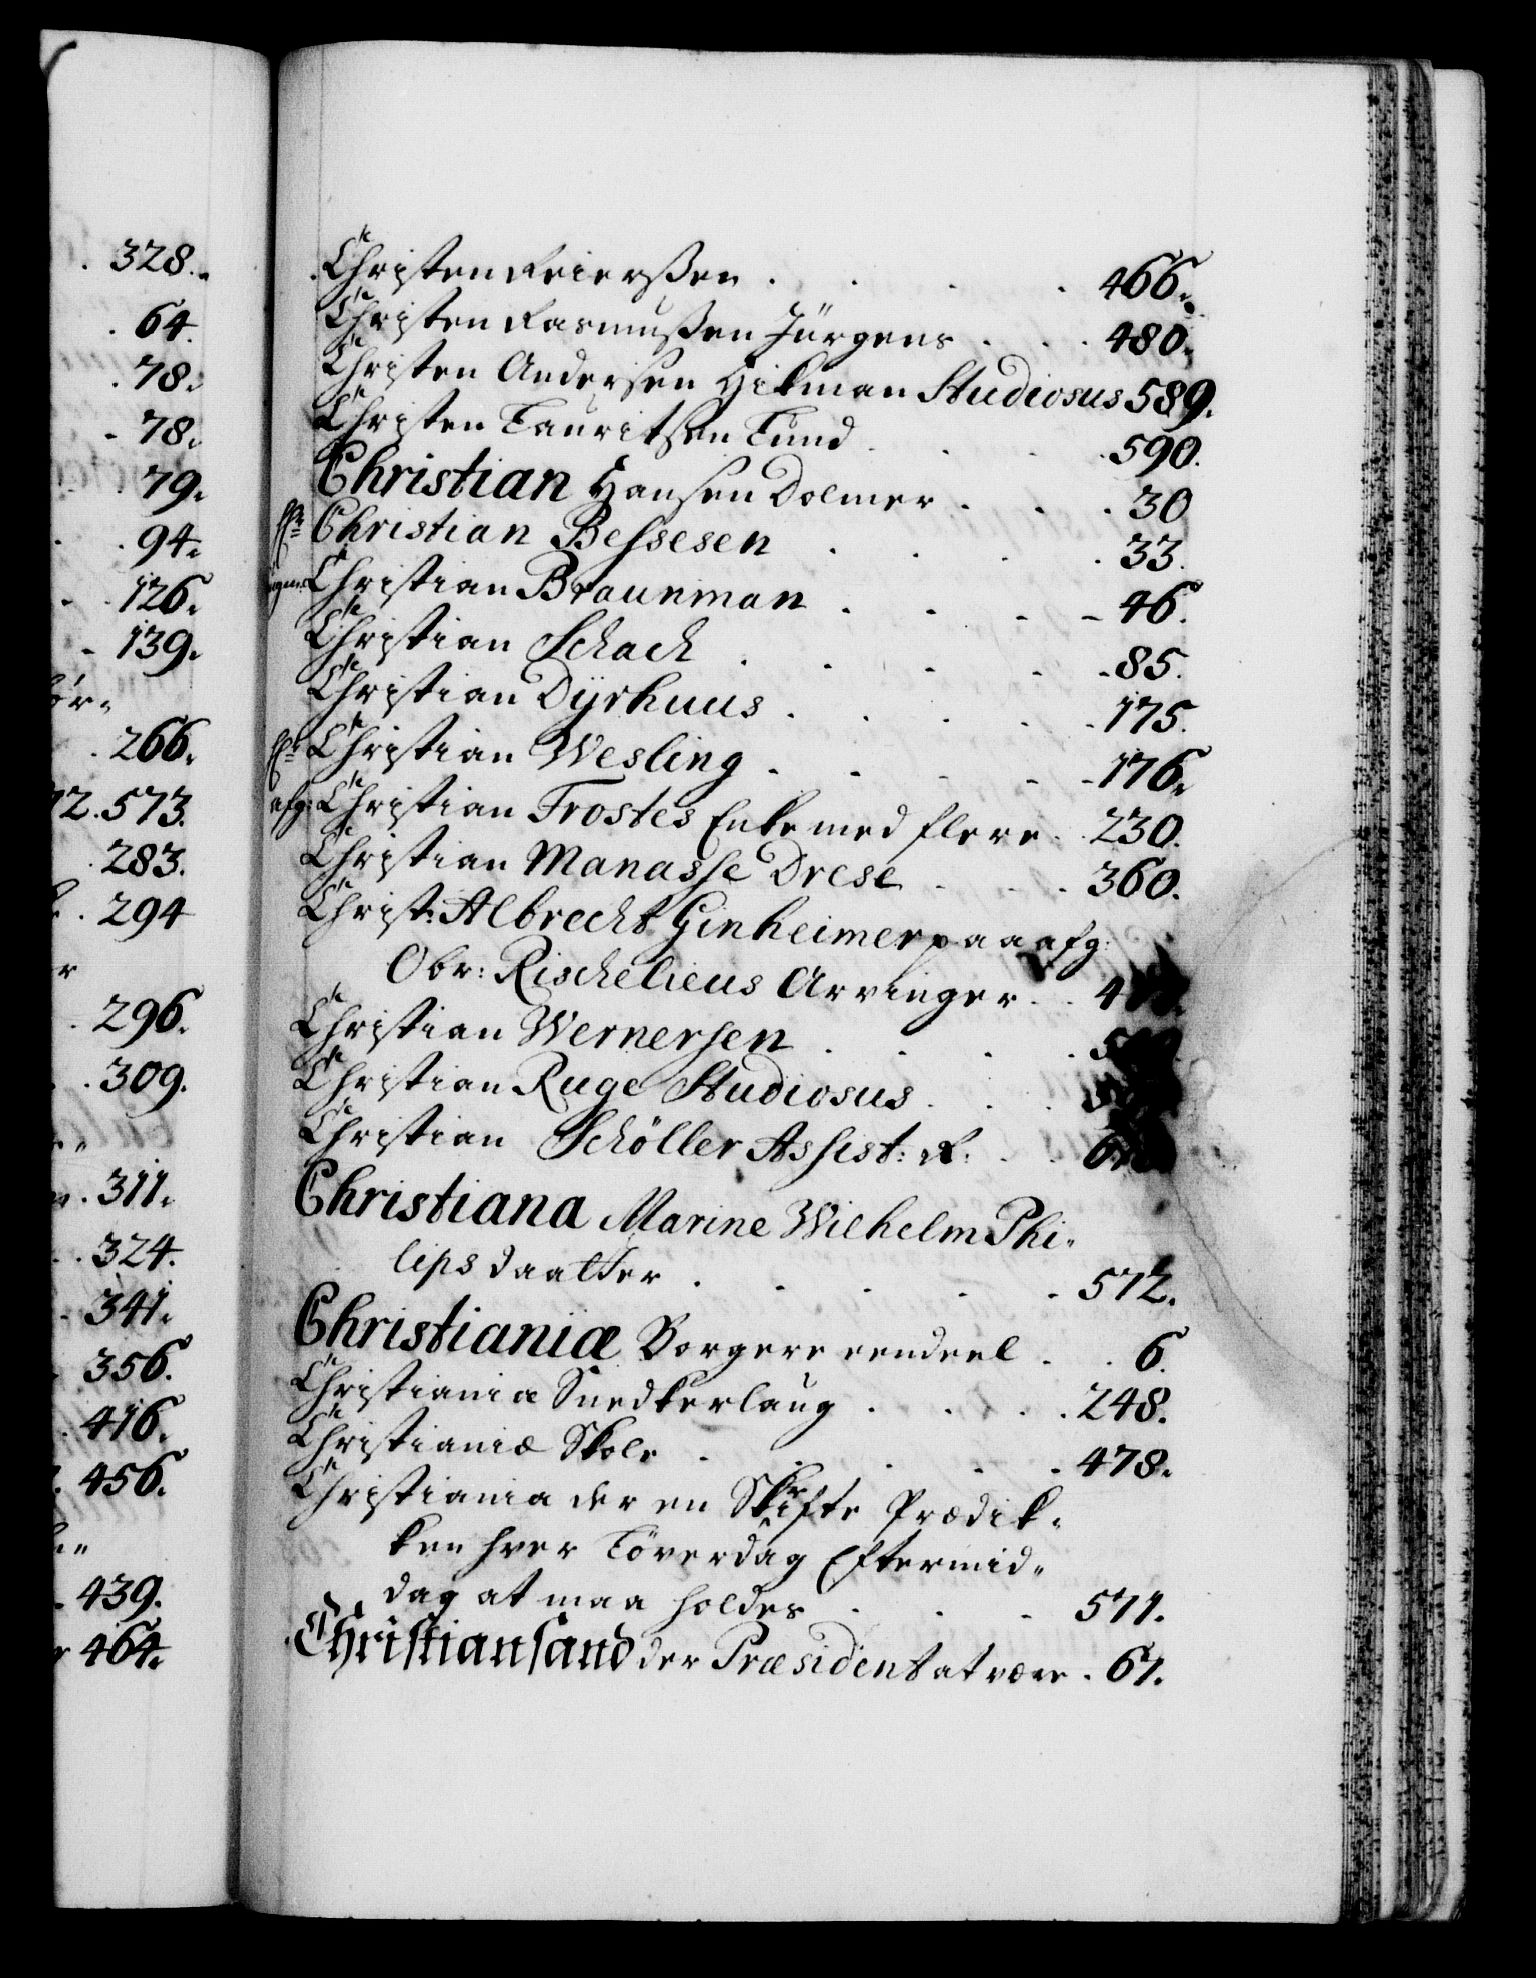 328.
64.
78.
78.
79.
94.
126.
139.
ör-
266.
72.573.
283.
294
r
296.
309.
311.
324.
341.
356.
416.
456.
439.
464.
Christen Reierssen . . . . 466.
Christen Rasmussen Jürgens . . . 480.
Christen Andersen Hikman Studiosus 589.
Christen Lauritsen Lund . . . . 590.
Christian Hansen Dolmer . . . 30
Christian Bessesen . . . . 33.
Christian Braunman . . . . 46.
Christian Schack . . . . 85.
Christian Dyrhuus . . . . . 175.
Christian Wesling . . . . . 176.
afg: Christian Trostes Enke med flere . . 230.
Christian Manasse Drese . . . 360.
Christ: Albrecht Ginheimer paa afg:
Obr: Rischelieus Arvinger . . 4
Christian Wernersen . . . . 5
Christian Ruge Studiosus . . .
Christian Schöller Assist: R: . . 6
Christiana Marine Wilhelm Phi-
lips daatter . . . . . 572.
Christianiæ Borgere eendeel . . 6.
Christiania Snedkerlaug . . . . 248.
Christianiæ Skole . . . . . 478.
Christiania der en Skrifte Prædik-
ken hver Löverdag Eftermid-
dag at maa holdes . . . 571.
Christiansand der Præsident at være . 61.